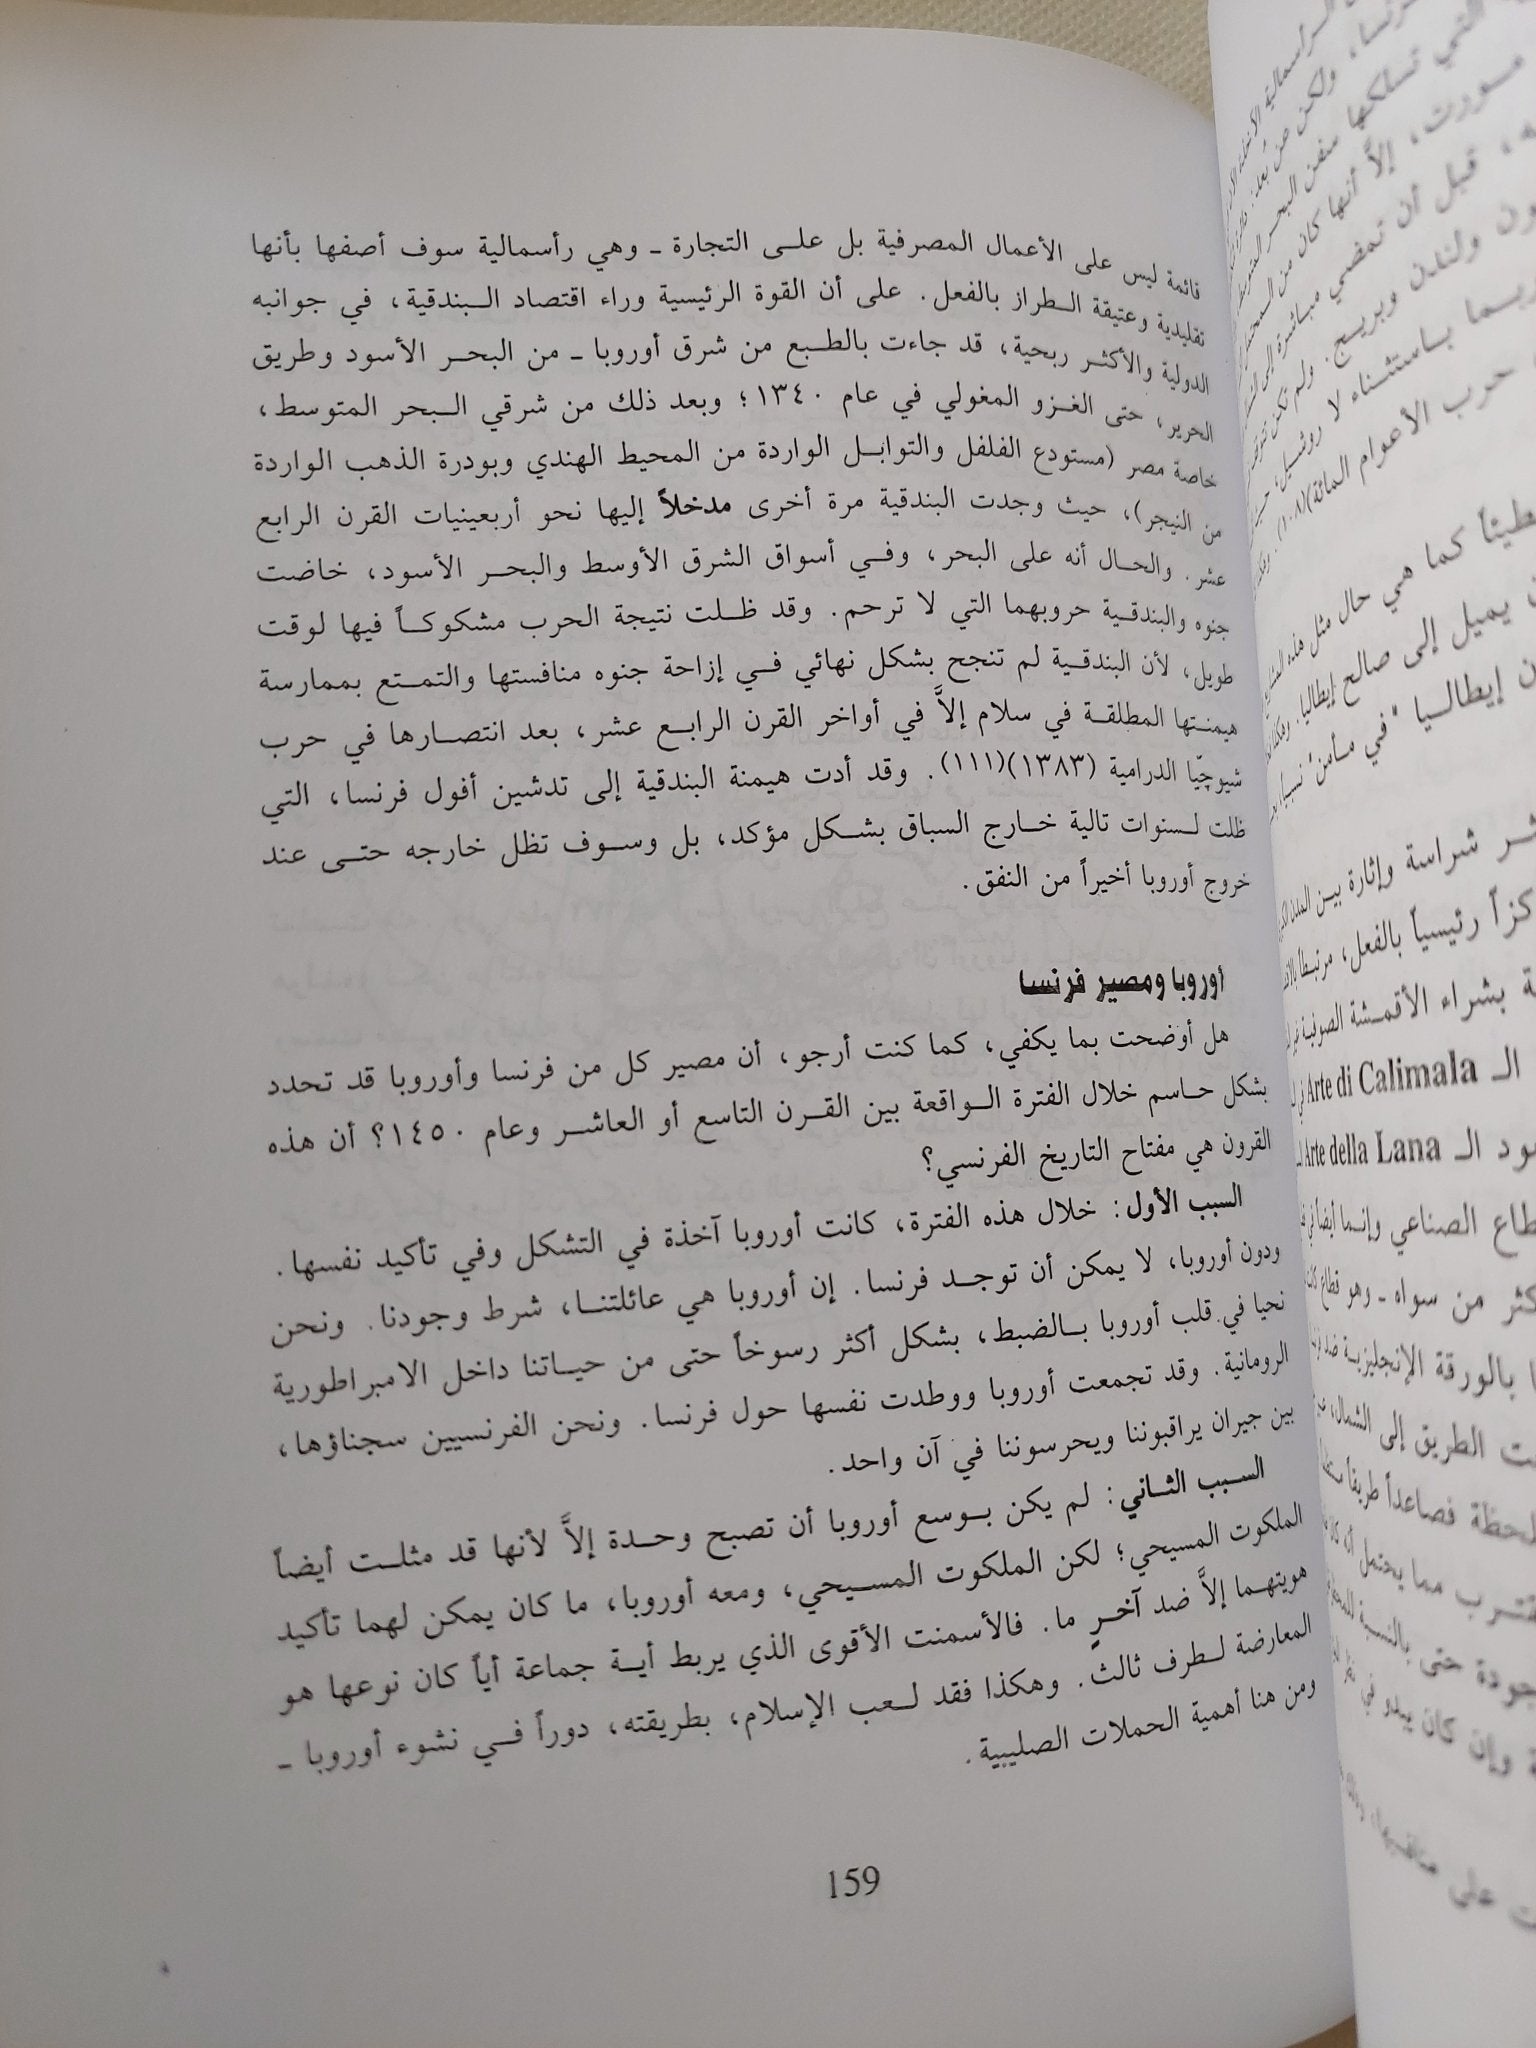 قائمة ليس على الأعمال المصرفية بل على التجارة ـ وهي رأسمالية سوف أصفها بأنها
تقليدية وعتيقة الطراز بالفعل. على أن القوة الرئيسية وراء اقتصاد البندقية، في جوانبه
الدولية والأكثر ربحية، قد جاءت بالطبع من شرق أوروبا ـ من البحر الأسود وطريق
الحرير، حتى الغزو المغولي في عام ١٣٤٠؛ وبعد ذلك من شرقي البحر المتوسط،
خاصة مصر (مستودع الفلفل والتوابل الواردة من المحيط الهندي وبودرة الذهب الواردة
من النيجر)، حيث وجدت البندقية مرة أخرى مدخلاً إليها نحو أربعينيات القرن الرابع
عشر. والحال أنه على البحر، وفي أسواق الشرق الأوسط والبحر الأسود، خاضت
جنوه والبندقية حروبهما التي لا ترحم. وقد ظلت نتيجة الحرب مشكوكاً فيها لوقت
طويل، لأن البندقية لم تنجح بشكل نهائي في إزاحة جنوه منافستها والتمتع بممارسة
هيمنتها المطلقة في سلام إلاَّ في أواخر القرن الرابع عشر، بعد انتصارها في حرب
شيوچّيا الدرامية (١٣٨٣)(١١١). وقد أدت هيمنة البندقية إلى تدشين أفول فرنسا، التي
ظلت لسنوات تالية خارج السباق بشكل مؤكد، بل وسوف تظل خارجه حتى عند
خروج أوروبا أخيراً من النفق.
أوروبا ومصير فرنسا
هل أوضحت بما يكفي، كما كنت أرجو، أن مصير كل من فرنسا وأوروبا قد تحدد
بشكل حاسم خلال الفترة الواقعة بين القرن التاسع أو العاشر وعام ١٤٥٠؟ أن هذه
القرون هي مفتاح التاريخ الفرنسي؟
السبب الأول: خلال هذه الفترة، كانت أوروبا آخذة في التشكل وفي تأكيد نفسها.
ودون أوروبا، لا يمكن أن توجد فرنسا. إن أوروبا هي عائلتنا، شرط وجودنا. ونحن
نحيا في قلب أوروبا بالضبط، بشكل أكثر رسوخاً حتى من حياتنا داخل الامبراطورية
الرومانية. وقد تجمعت أوروبا ووطدت نفسها حول فرنسا. ونحن الفرنسيين سجناؤها،
بين جيران يراقبوننا ويحرسوننا في آن واحد.
السبب الثاني: لم يكن بوسع أوروبا أن تصبح وحدة إلاَّ لأنها قد مثلت أيضاً
الملكوت المسيحي؛ لكن الملكوت المسيحي، ومعه أوروبا، ما كان يمكن لهما تأكيد
هويتهما إلاَّ ضد آخرٍ ما. فالأسمنت الأقوى الذي يربط أية جماعة أياً كان نوعها هو
المعارضة لطرف ثالث. وهكذا فقد لعب الإسلام، بطريقته، دوراً في نشوء أوروبا ـ
ومن هنا أهمية الحملات الصليبية.
159
ولكن عن بُعد.
التي تسلكها سفن البحر
إلاَّ أنها كان من
قبل أن تمضي مباشرة إلى
ولندن وبريج. ولم تكن
باستثناء لا روشيل،
حرب الأعوام المائة)(١٠٨).
كما هي حال مثل هذه
يميل إلى صالح إيطاليا.
إيطاليا "في مأمن" نسبياً
شراسة وإثارة بين المدن
رئيسياً بالفعل، مرتبطاً
بشراء الأقمشة الصوفية
الـ Arte di Calimala
الـ Arte della Lana
الصناعي وإنما أيضاً
من سواه ـ وهو قطاع
بالورقة الإنجليزية ضد
الطريق إلى الشمال،
فصاعداً طريقاً
مما يحتمل
حتى بالنسبة
وإن كان يبدو في
على